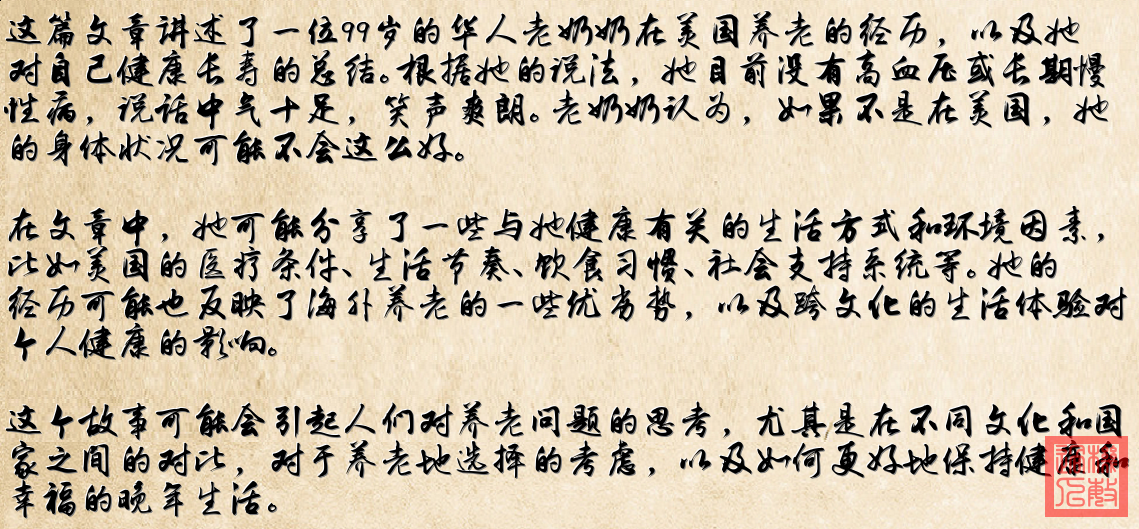 这篇文章讲述了一位99岁的华人老奶奶在美国养老的经历，以及她
对自己健康长寿的总结。根据她的说法，她目前没有高血压或长期慢
性病，说话中气十足，笑声爽朗。老奶奶认为，如果不是在美国，她
的身体状况可能不会这么好。
在文章中，她可能分享了一些与她健康有关的生活方式和环境因素，
比如美国的医疗条件、生活节奏、饮食习惯、社会支持系统等。她的
经历可能也反映了海外养老的一些优劣势，以及跨文化的生活体验对
个人健康的影响。
这个故事可能会引起人们对养老问题的思考，尤其是在不同文化和国
家之间的对比，对于养老地选择的考虑，以及如何更好地保持健康和
幸福的晚年生活。